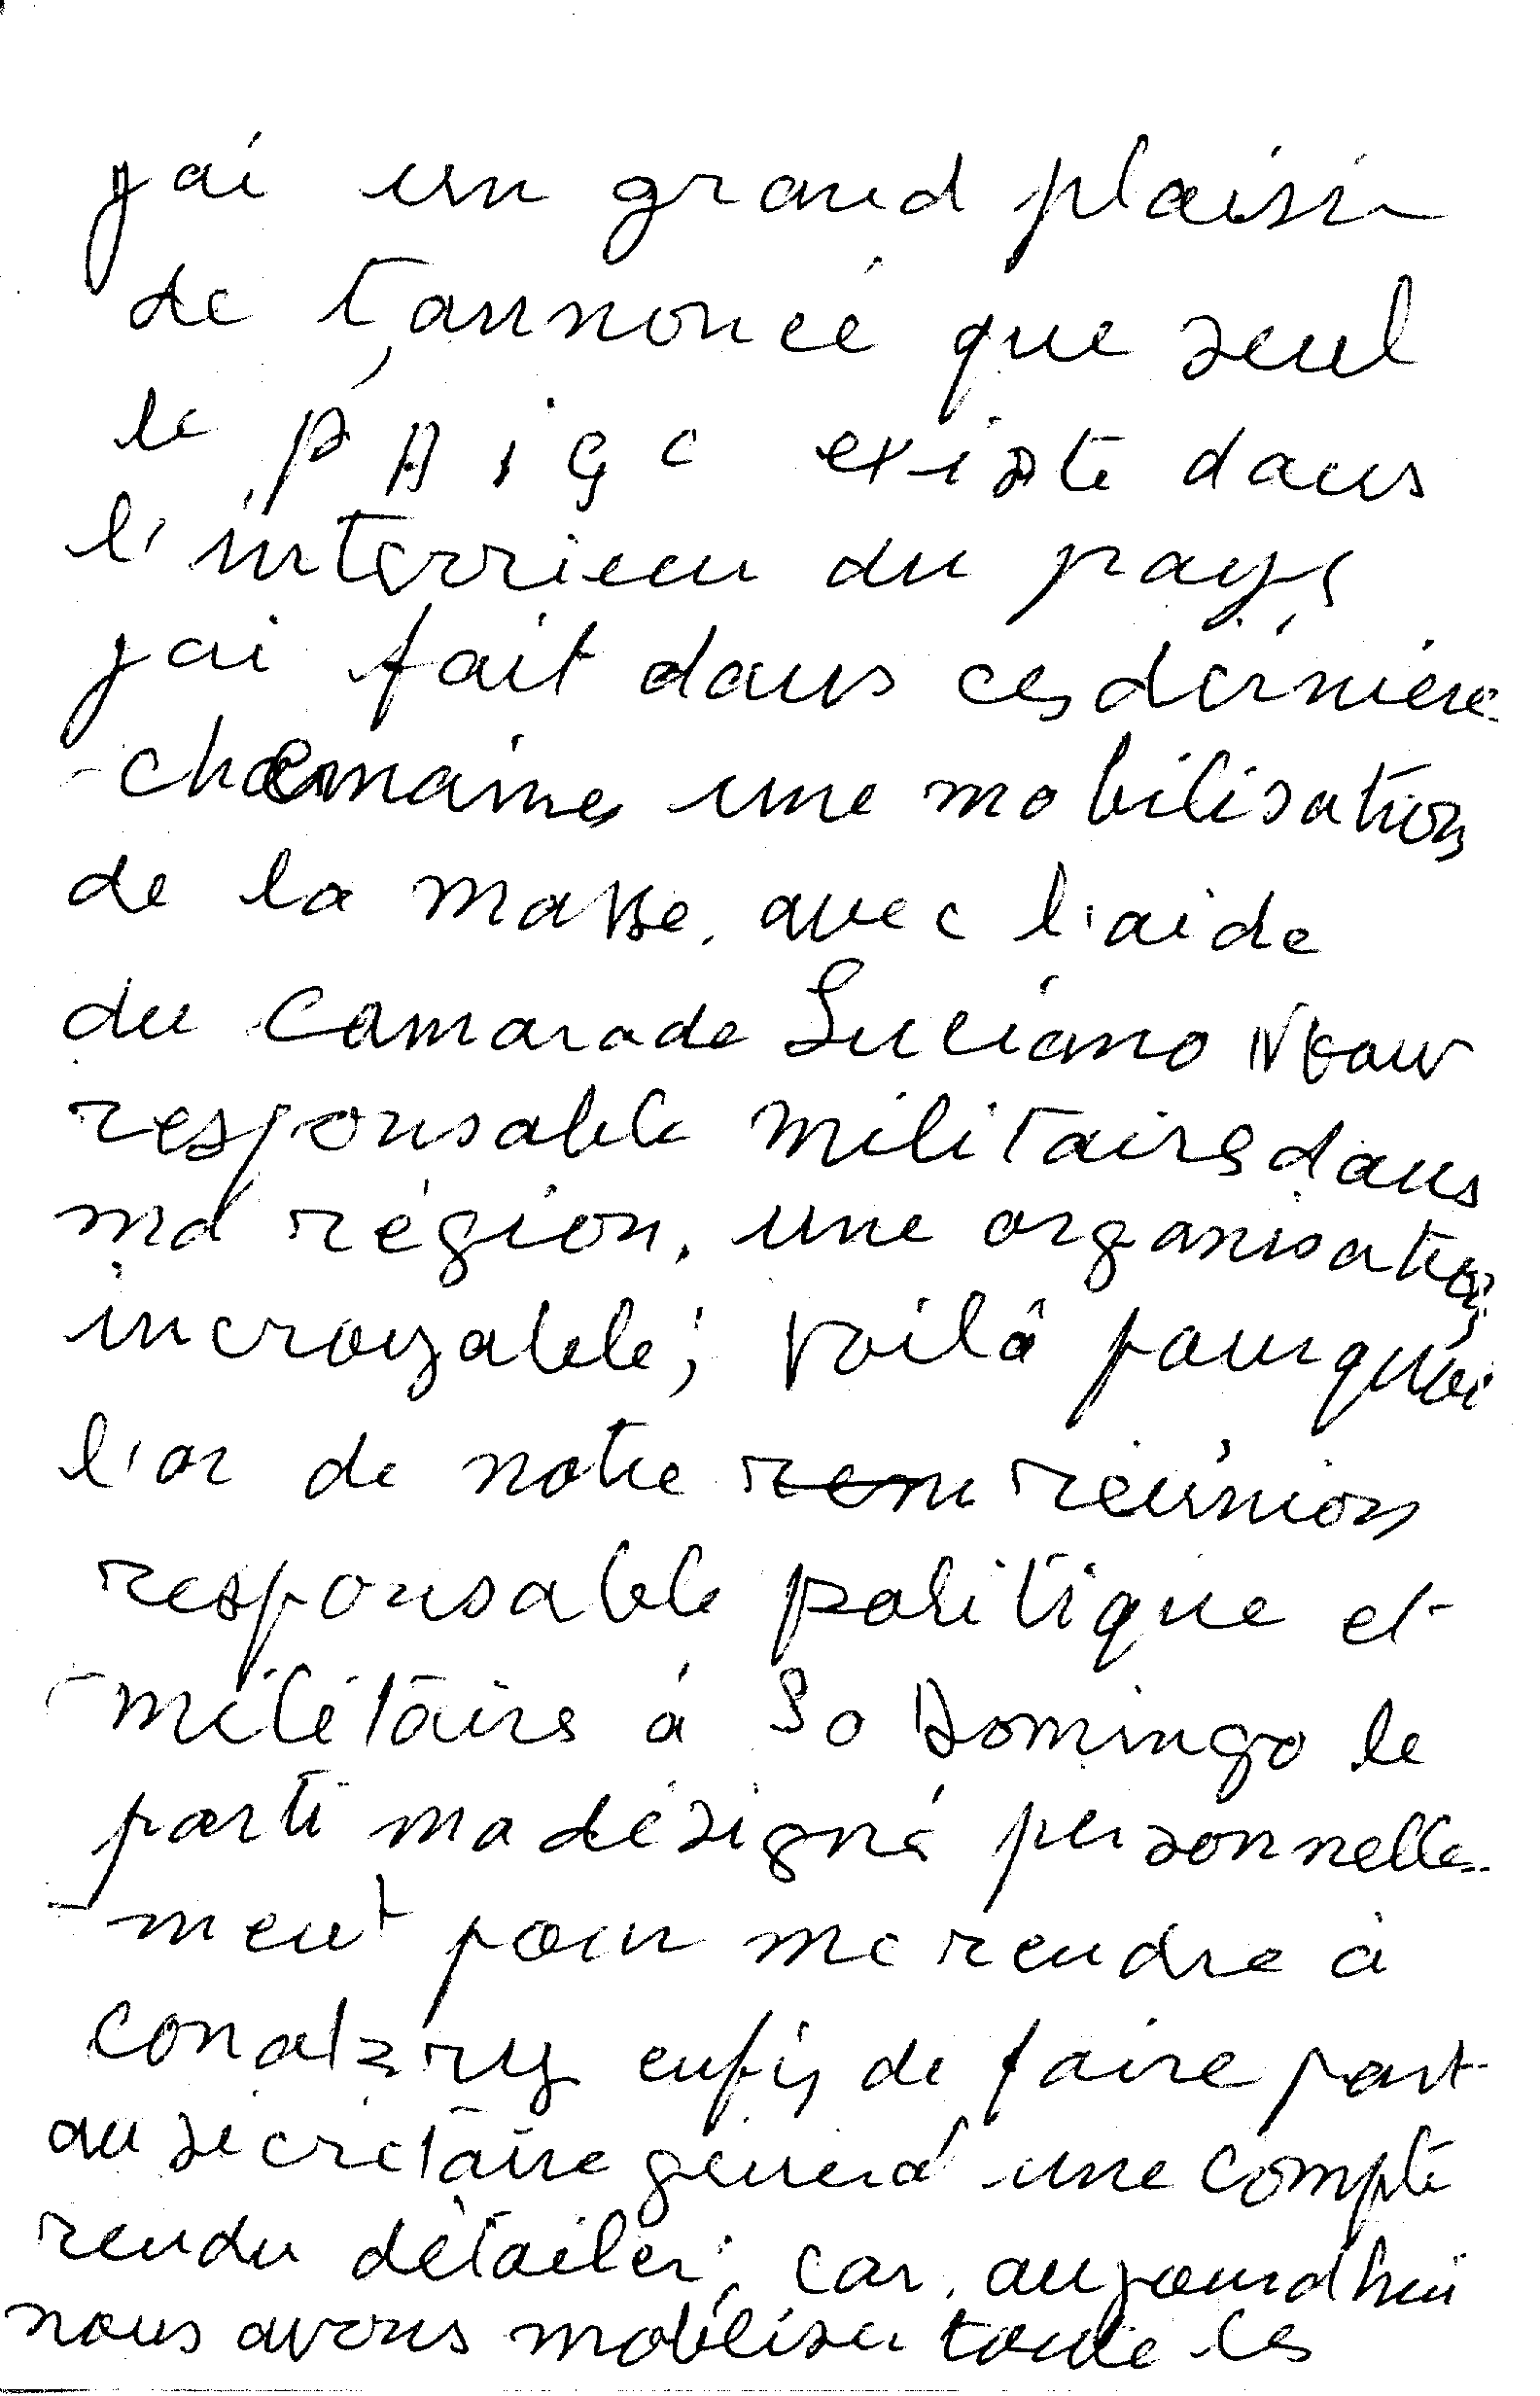 jai un grand plaisir
de t'annoncé que seul
le PAIGC existe dans
l'interrieur du pays
jai fait dans ces dernière
maines une mobilisation
de la masse. avec l'aide
du Camarade Luciano
responsable militaire dans
ma région. une organisation
incroyable; voilà pourquoi
l'or de notre réunion
responsable politique et
militaire à So Domingo le
parti ma désigné personnelle-
-ment pour me rendre à
conakry enfis de faire part
au secrétaire général une compte
rendu détailer; car. aujourdhui
nous avons mobiliser toute les